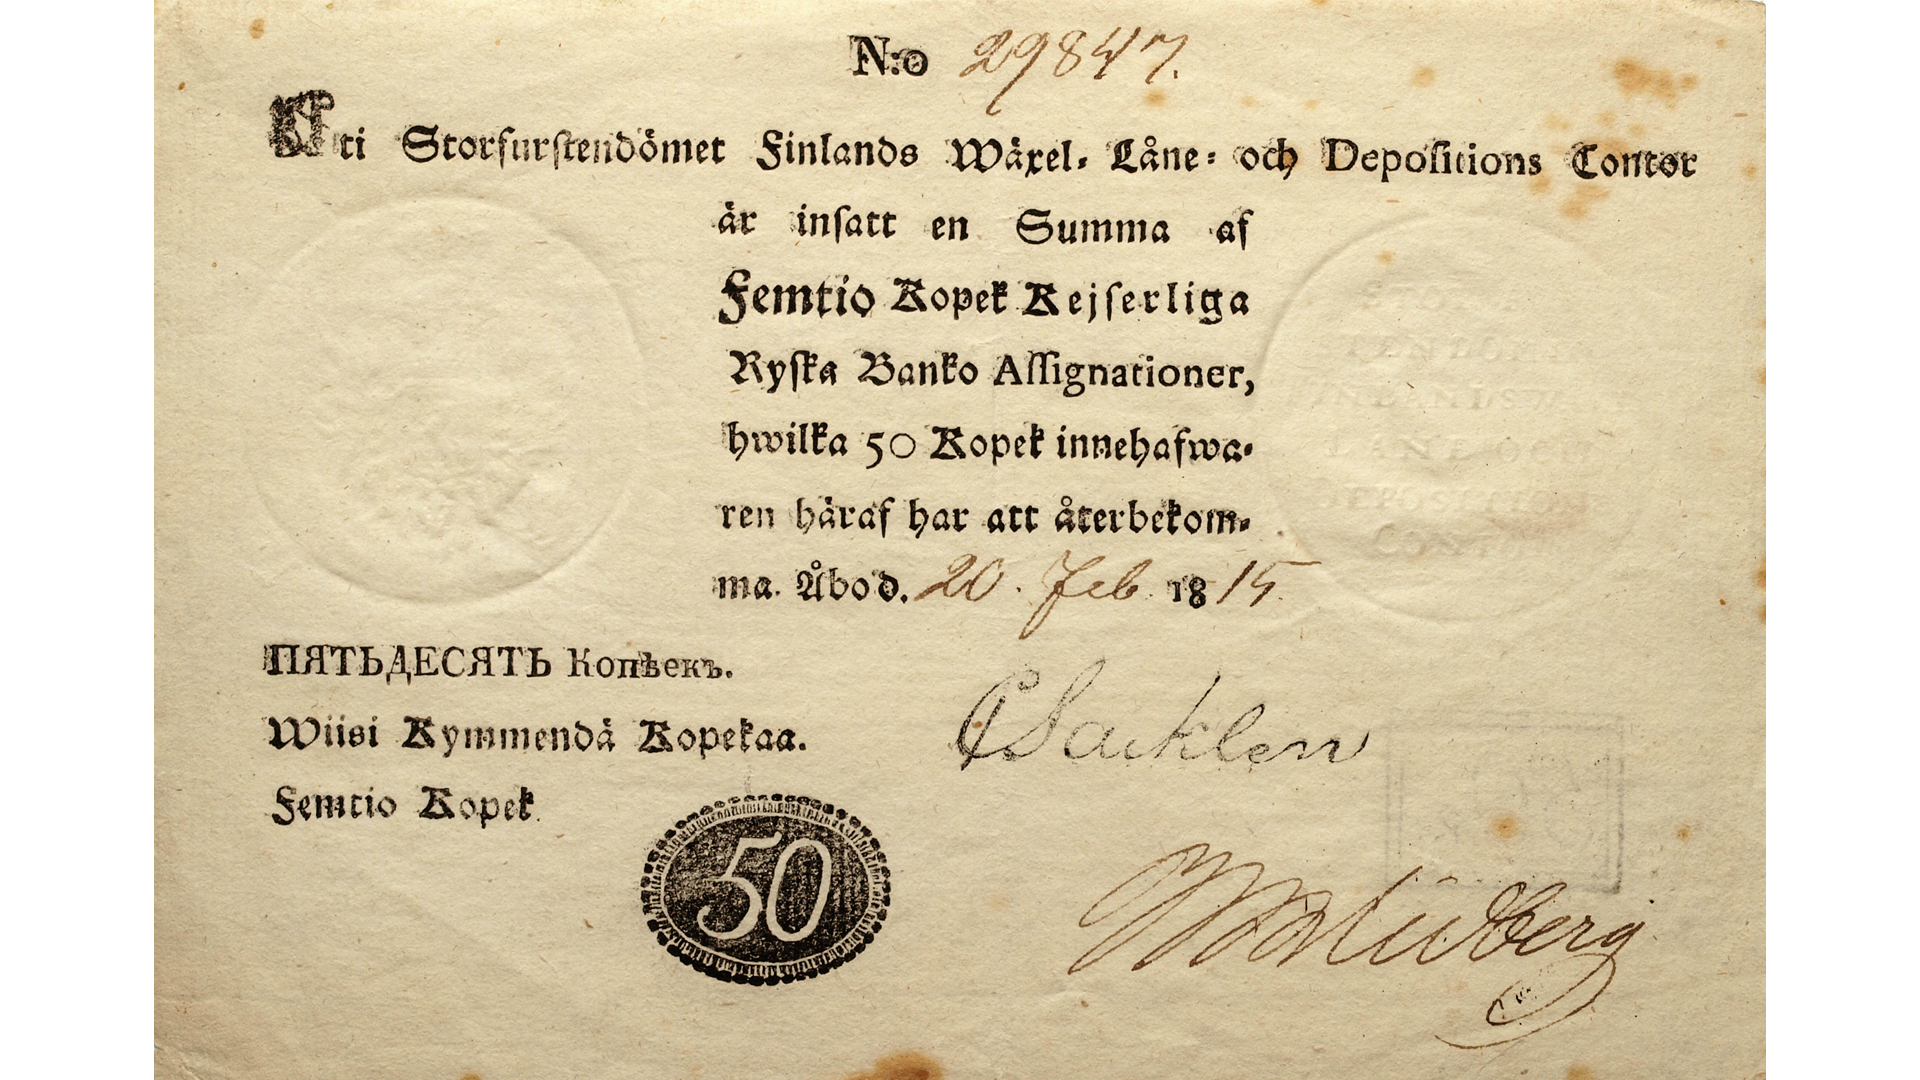 N:o 29847.
Uti Storfurstendömet Finlands Wäxel- Låne- och Depositions Contor
är insatt en Summa af
Femtio Kopek Kejserliga
Ryska Banko Assignationer,
hwilka 50 Kopek innehafwa-
ren häraf har att återbekom-
ma. Åbo d. 20. Feb 1815
ПЯТЬДЕСЯТЬ Копѣекъ.
Wiisi Kymmendä Kopekaa.
Femtio Kopek
CSacklen
50
FINLANDS
LÅNE OCH
CONTOR